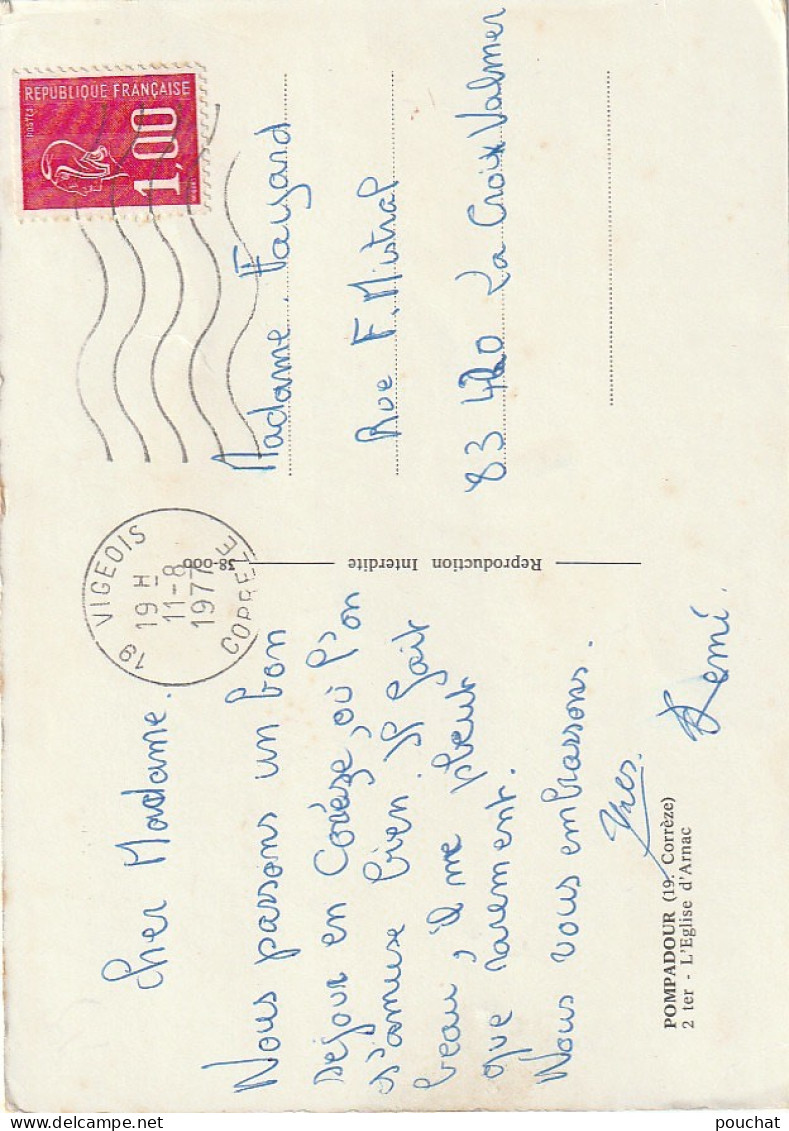 Cher Madame.
Nous passons un bon
séjour en Corèze, où l'on
s'amuse bien. Il fait
beau, il ne pleut
que rarement.
Nous vous embrassons.
Yves.
Remi.
POMPADOUR (19. Corrèze)
2 ter - L'Eglise d'Arnac
Reproduction Interdite
38-000
19 VIGEOIS
19 H
11-8
1977
CORREZE
REPUBLIQUE FRANÇAISE
POSTES
1,00
Madame. Fayard
Rue F. Mistral
83 420 La Croix Valmer
pouchat